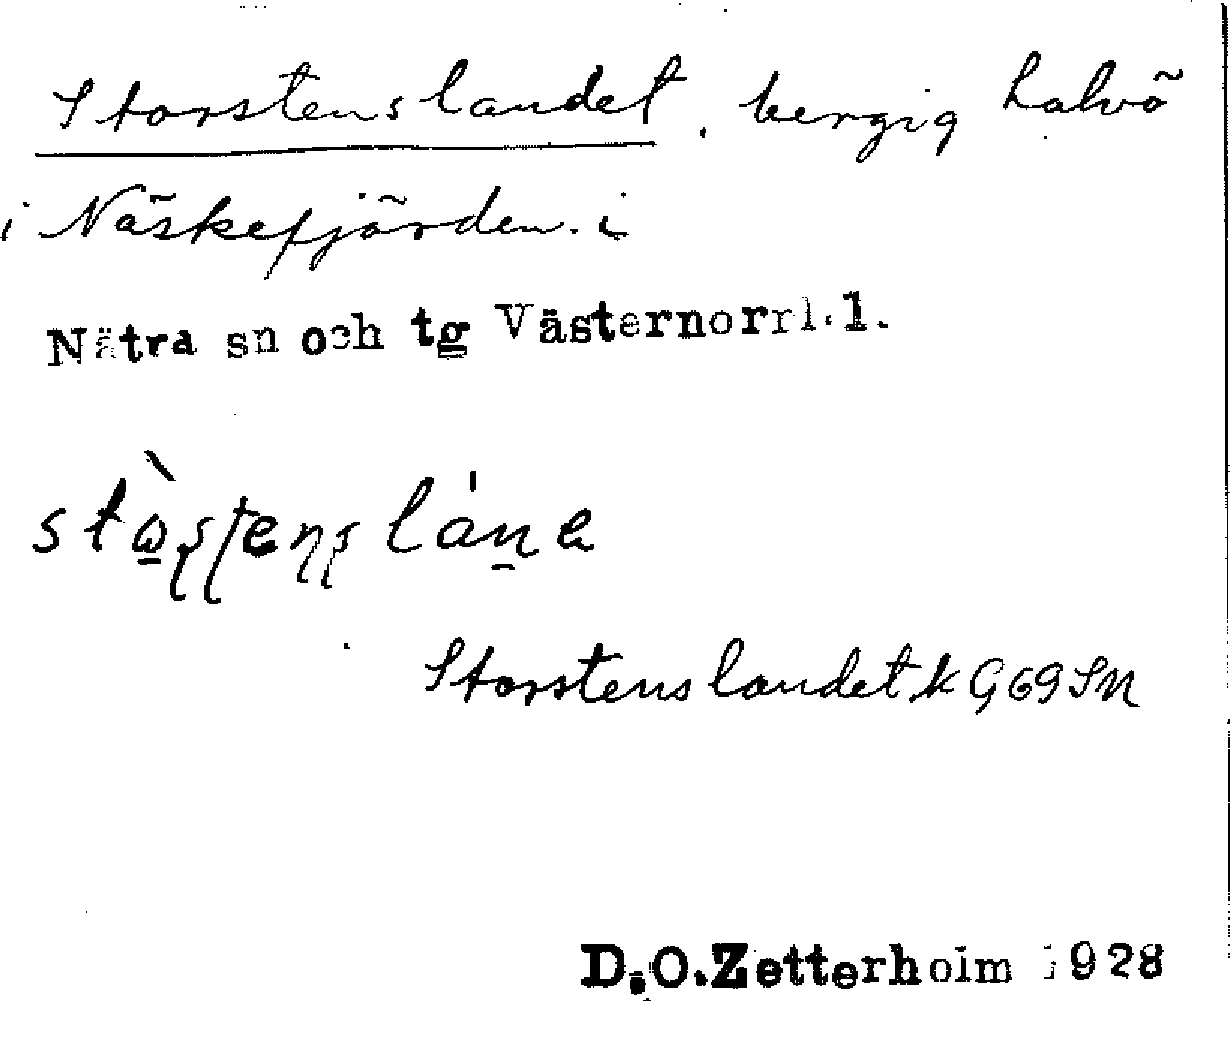 Storstenslandet, bergig halvö
i Näskefjärden. i
Nätra sn och tg Västernorrl.l.
Storstenslandet k G 69 SM
D.O.Zetterholm 1928